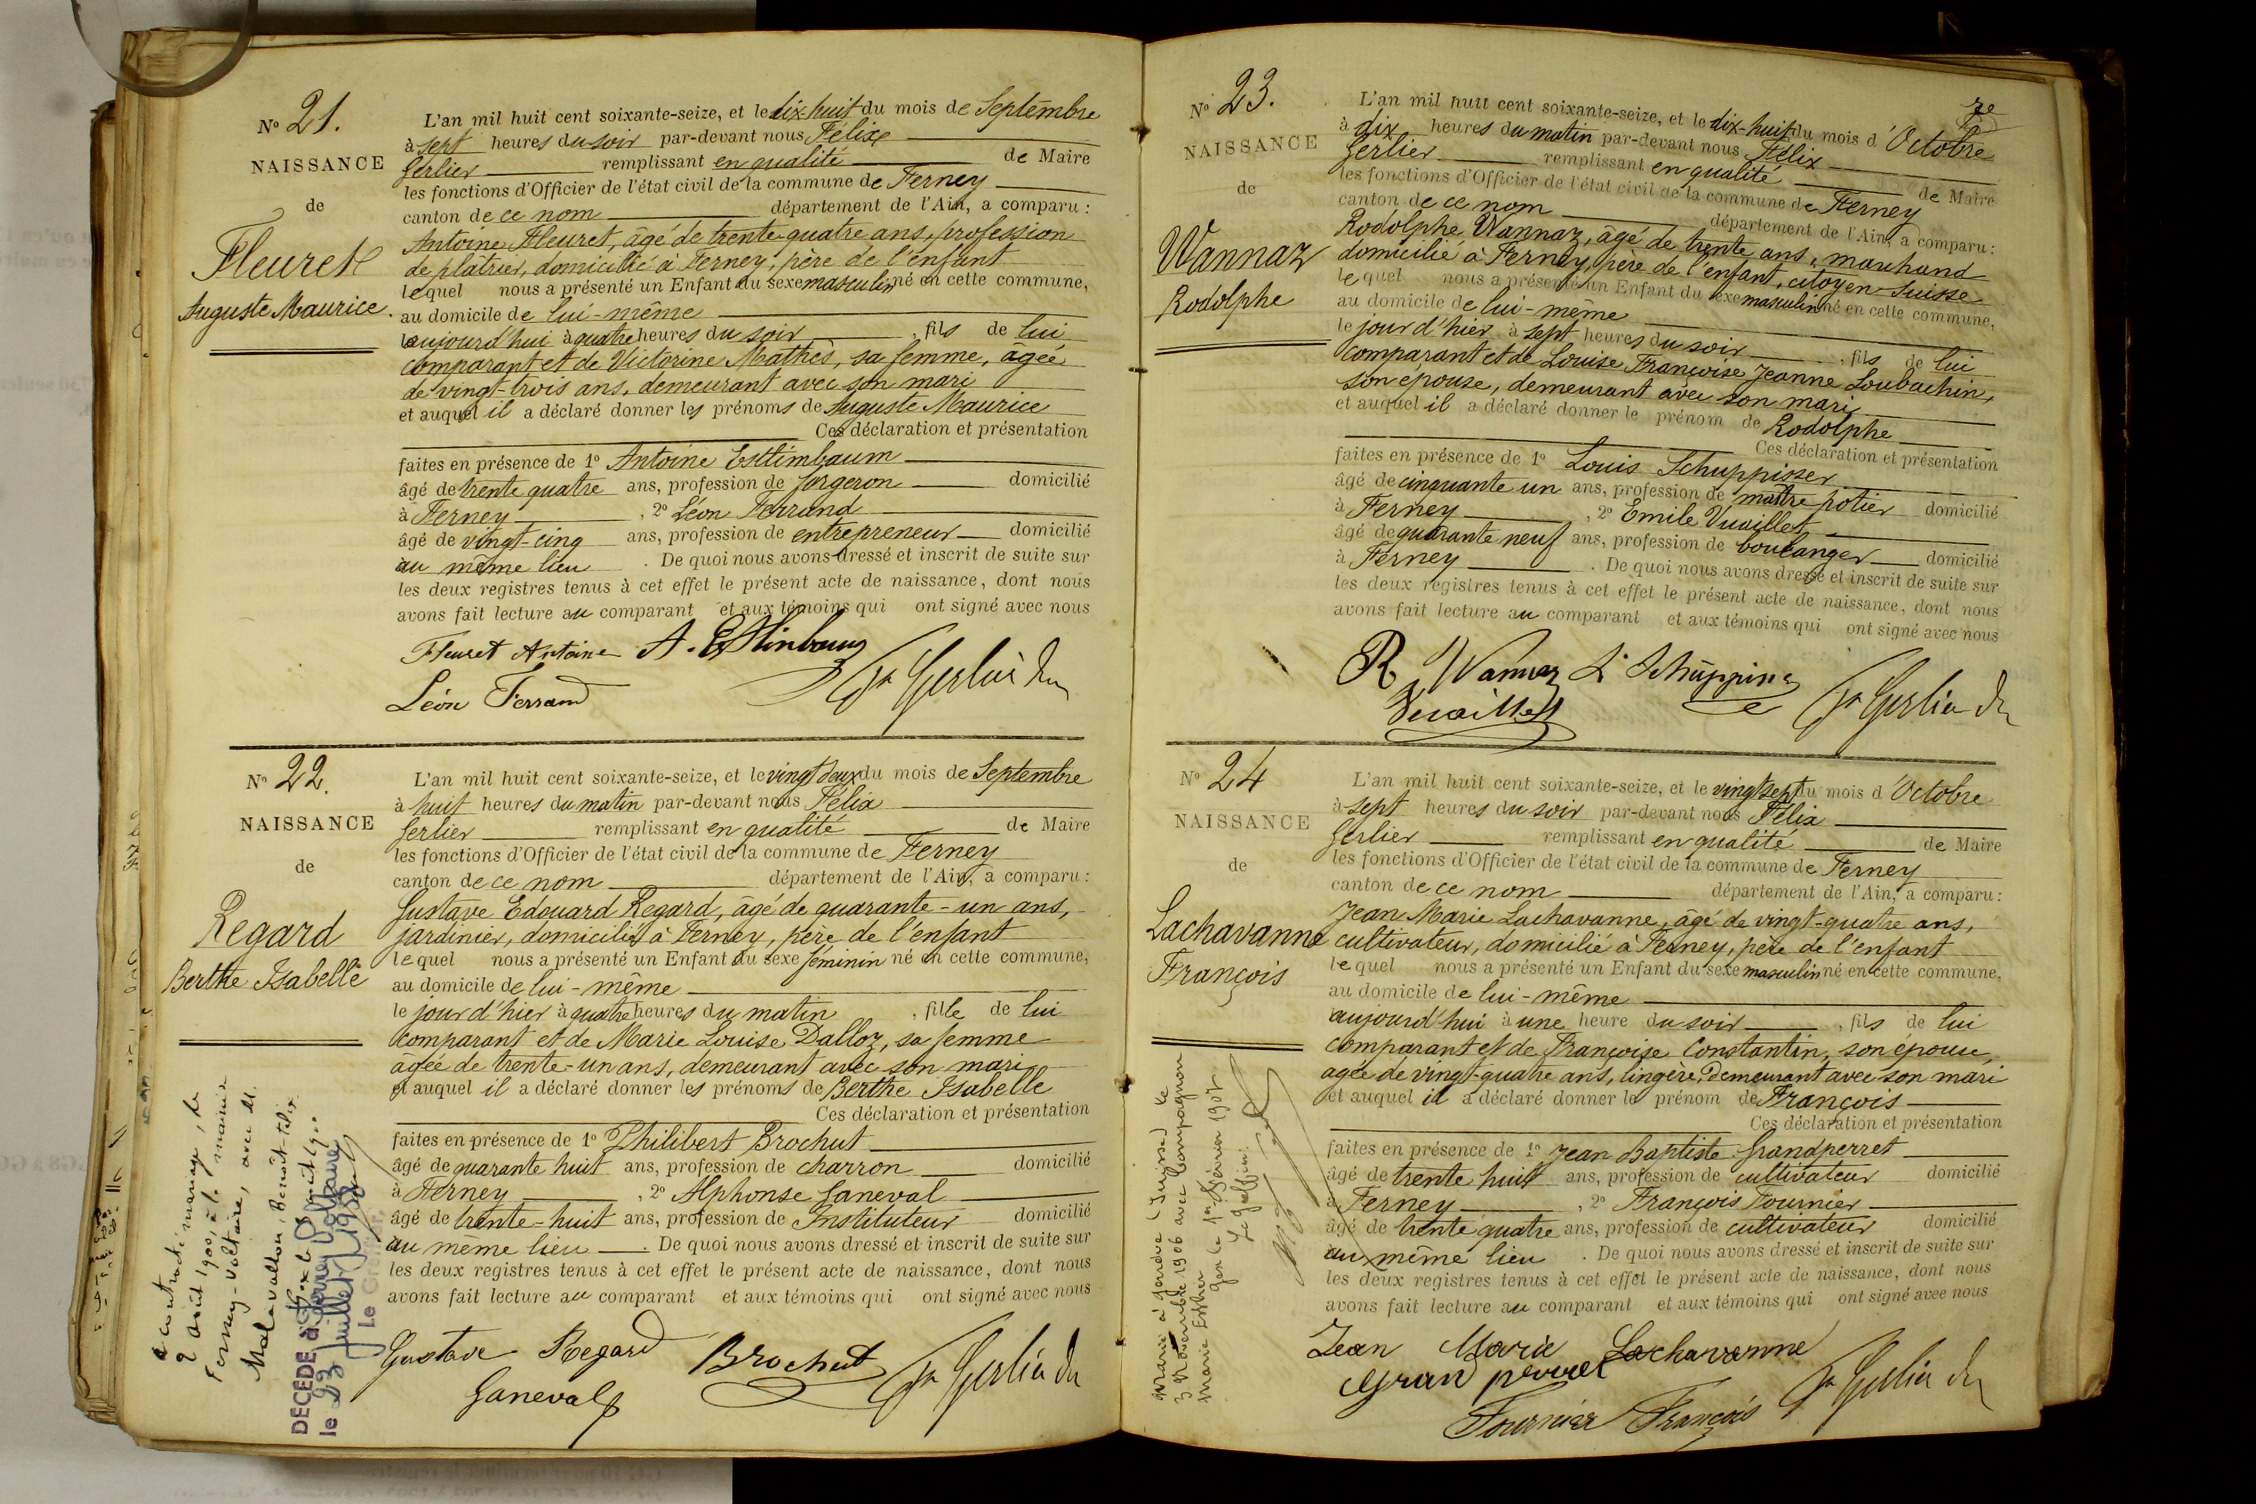 N° 21.
NAISSANCE
de
Fleuret
Auguste Maurice.
L'an mil huit cent soixante-seize, et le dix huit du mois de Septembre
à sept heures du soir par-devant nous Félix
Gerlier remplissant en qualité de Maire
les fonctions d'Officier de l'état civil de la commune de Ferney
canton de ce nom département de l'Ain, a comparu :
Antoine Fleuret, âgé de trente-quatre ans, profession
de plâtrier, domicilié à Ferney, père de l'enfant
lequel nous a présenté un Enfant du sexe masculin né en cette commune,
au domicile de lui-même
aujourd'hui à quatre heures du soir, fils de lui
comparant et de Victorine Mathès, sa femme, âgée
de vingt-trois ans, demeurant avec son mari
et auquel il a déclaré donner les prénoms de Auguste Maurice
Ces déclaration et présentation
faites en présence de 1° Antoine Esslimbaum
âgé de trente quatre ans, profession de forgeron domicilié
à Ferney, 2° Léon Ferrand
âgé de vingt-cinq ans, profession de entrepreneur domicilié
au même lieu. De quoi nous avons dressé et inscrit de suite sur
les deux registres tenus à cet effet le présent acte de naissance, dont nous
avons fait lecture au comparant et aux témoins qui ont signé avec nous
Fleuret Antoine
Léon Ferrand
N° 22.
NAISSANCE
de
Regard
Berthe Isabelle
L'an mil huit cent soixante-seize, et le vingt deux du mois de Septembre
à huit heures du matin par-devant nous Félix
Gerlier remplissant en qualité de Maire
les fonctions d'Officier de l'état civil de la commune de Ferney
canton de ce nom département de l'Ain, a comparu :
Gustave Edouard Regard, âgé de quarante-un ans,
jardinier, domicilié à Ferney, père de l'enfant
lequel nous a présenté un Enfant du sexe féminin né en cette commune,
au domicile de lui-même
le jour d'hier à quatre heures du matin, fille de lui
comparant et de Marie Louise Dalloz, sa femme
âgée de trente-un ans, demeurant avec son mari
et auquel il a déclaré donner les prénoms de Berthe Isabelle
Ces déclaration et présentation
faites en présence de 1° Philibert Brochut
âgé de quarante huit ans, profession de charron domicilié
à Ferney, 2° Alphonse Ganeval
âgé de trente-huit ans, profession de Instituteur domicilié
au même lieu. De quoi nous avons dressé et inscrit de suite sur
les deux registres tenus à cet effet le présent acte de naissance, dont nous
avons fait lecture au comparant et aux témoins qui ont signé avec nous
Gustave Regard Brochut
Ganeval
a contracté mariage, le
2 août 1900, à la mairie
Ferney-Voltaire, avec M.
Malavallon, Benoît-Félix
DÉCÉDÉ à Ferney Voltaire
le 23 juillet
Le Greffier,
N° 23.
NAISSANCE
de
Wannaz
Rodolphe
L'an mil huit cent soixante-seize, et le dix-huit du mois d'Octobre
à dix heures du matin par-devant nous Félix
Gerlier remplissant en qualité de Maire
les fonctions d'Officier de l'état civil de la commune de Ferney
canton de ce nom département de l'Ain, a comparu :
Rodolphe Wannaz, âgé de trente ans, marchand
domicilié à Ferney, père de l'enfant, citoyen-Suisse
lequel nous a présenté un Enfant du sexe masculin né en cette commune,
au domicile de lui-même
le jour d'hier à sept heures du soir, fils de lui
comparant et de Louise Françoise Jeanne Loubachin,
son épouse, demeurant avec son mari
et auquel il a déclaré donner le prénom de Rodolphe
Ces déclaration et présentation
faites en présence de 1° Louis Schuppisser
âgé de cinquante un ans, profession de maître potier domicilié
à Ferney, 2° Emile Vuaillet
âgé de quarante neuf ans, profession de boulanger domicilié
à Ferney. De quoi nous avons dressé et inscrit de suite sur
les deux registres tenus à cet effet le présent acte de naissance, dont nous
avons fait lecture au comparant et aux témoins qui ont signé avec nous
R Wannaz
Vuaillet
N° 24
NAISSANCE
de
Lachavanne
François
L'an mil huit cent soixante-seize, et le vingt sept du mois d'Octobre
à sept heures du soir par-devant nous Félix
Gerlier remplissant en qualité de Maire
les fonctions d'Officier de l'état civil de la commune de Ferney
canton de ce nom département de l'Ain, a comparu :
Jean Marie Lachavanne, âgé de vingt-quatre ans,
cultivateur, domicilié à Ferney, père de l'enfant
lequel nous a présenté un Enfant du sexe masculin né en cette commune,
au domicile de lui-même
aujourd'hui à une heure du soir, fils de lui
comparant et de Françoise Constantin, son épouse,
agée de vingt-quatre ans, lingère, demeurant avec son mari
et auquel il a déclaré donner le prénom de François
Ces déclaration et présentation
faites en présence de 1° Jean Baptiste Grandperret
âgé de trente huit ans, profession de cultivateur domicilié
à Ferney, 2° François Fournier
âgé de trente quatre ans, profession de cultivateur domicilié
au même lieu. De quoi nous avons dressé et inscrit de suite sur
les deux registres tenus à cet effet le présent acte de naissance, dont nous
avons fait lecture au comparant et aux témoins qui ont signé avec nous
Jean Marie Lachavanne
Grand perret
Fournier François
Marié à Genève (Suisse) le
3 Novembre 1906 avec Compagnon
Marie Esther
Le greffier